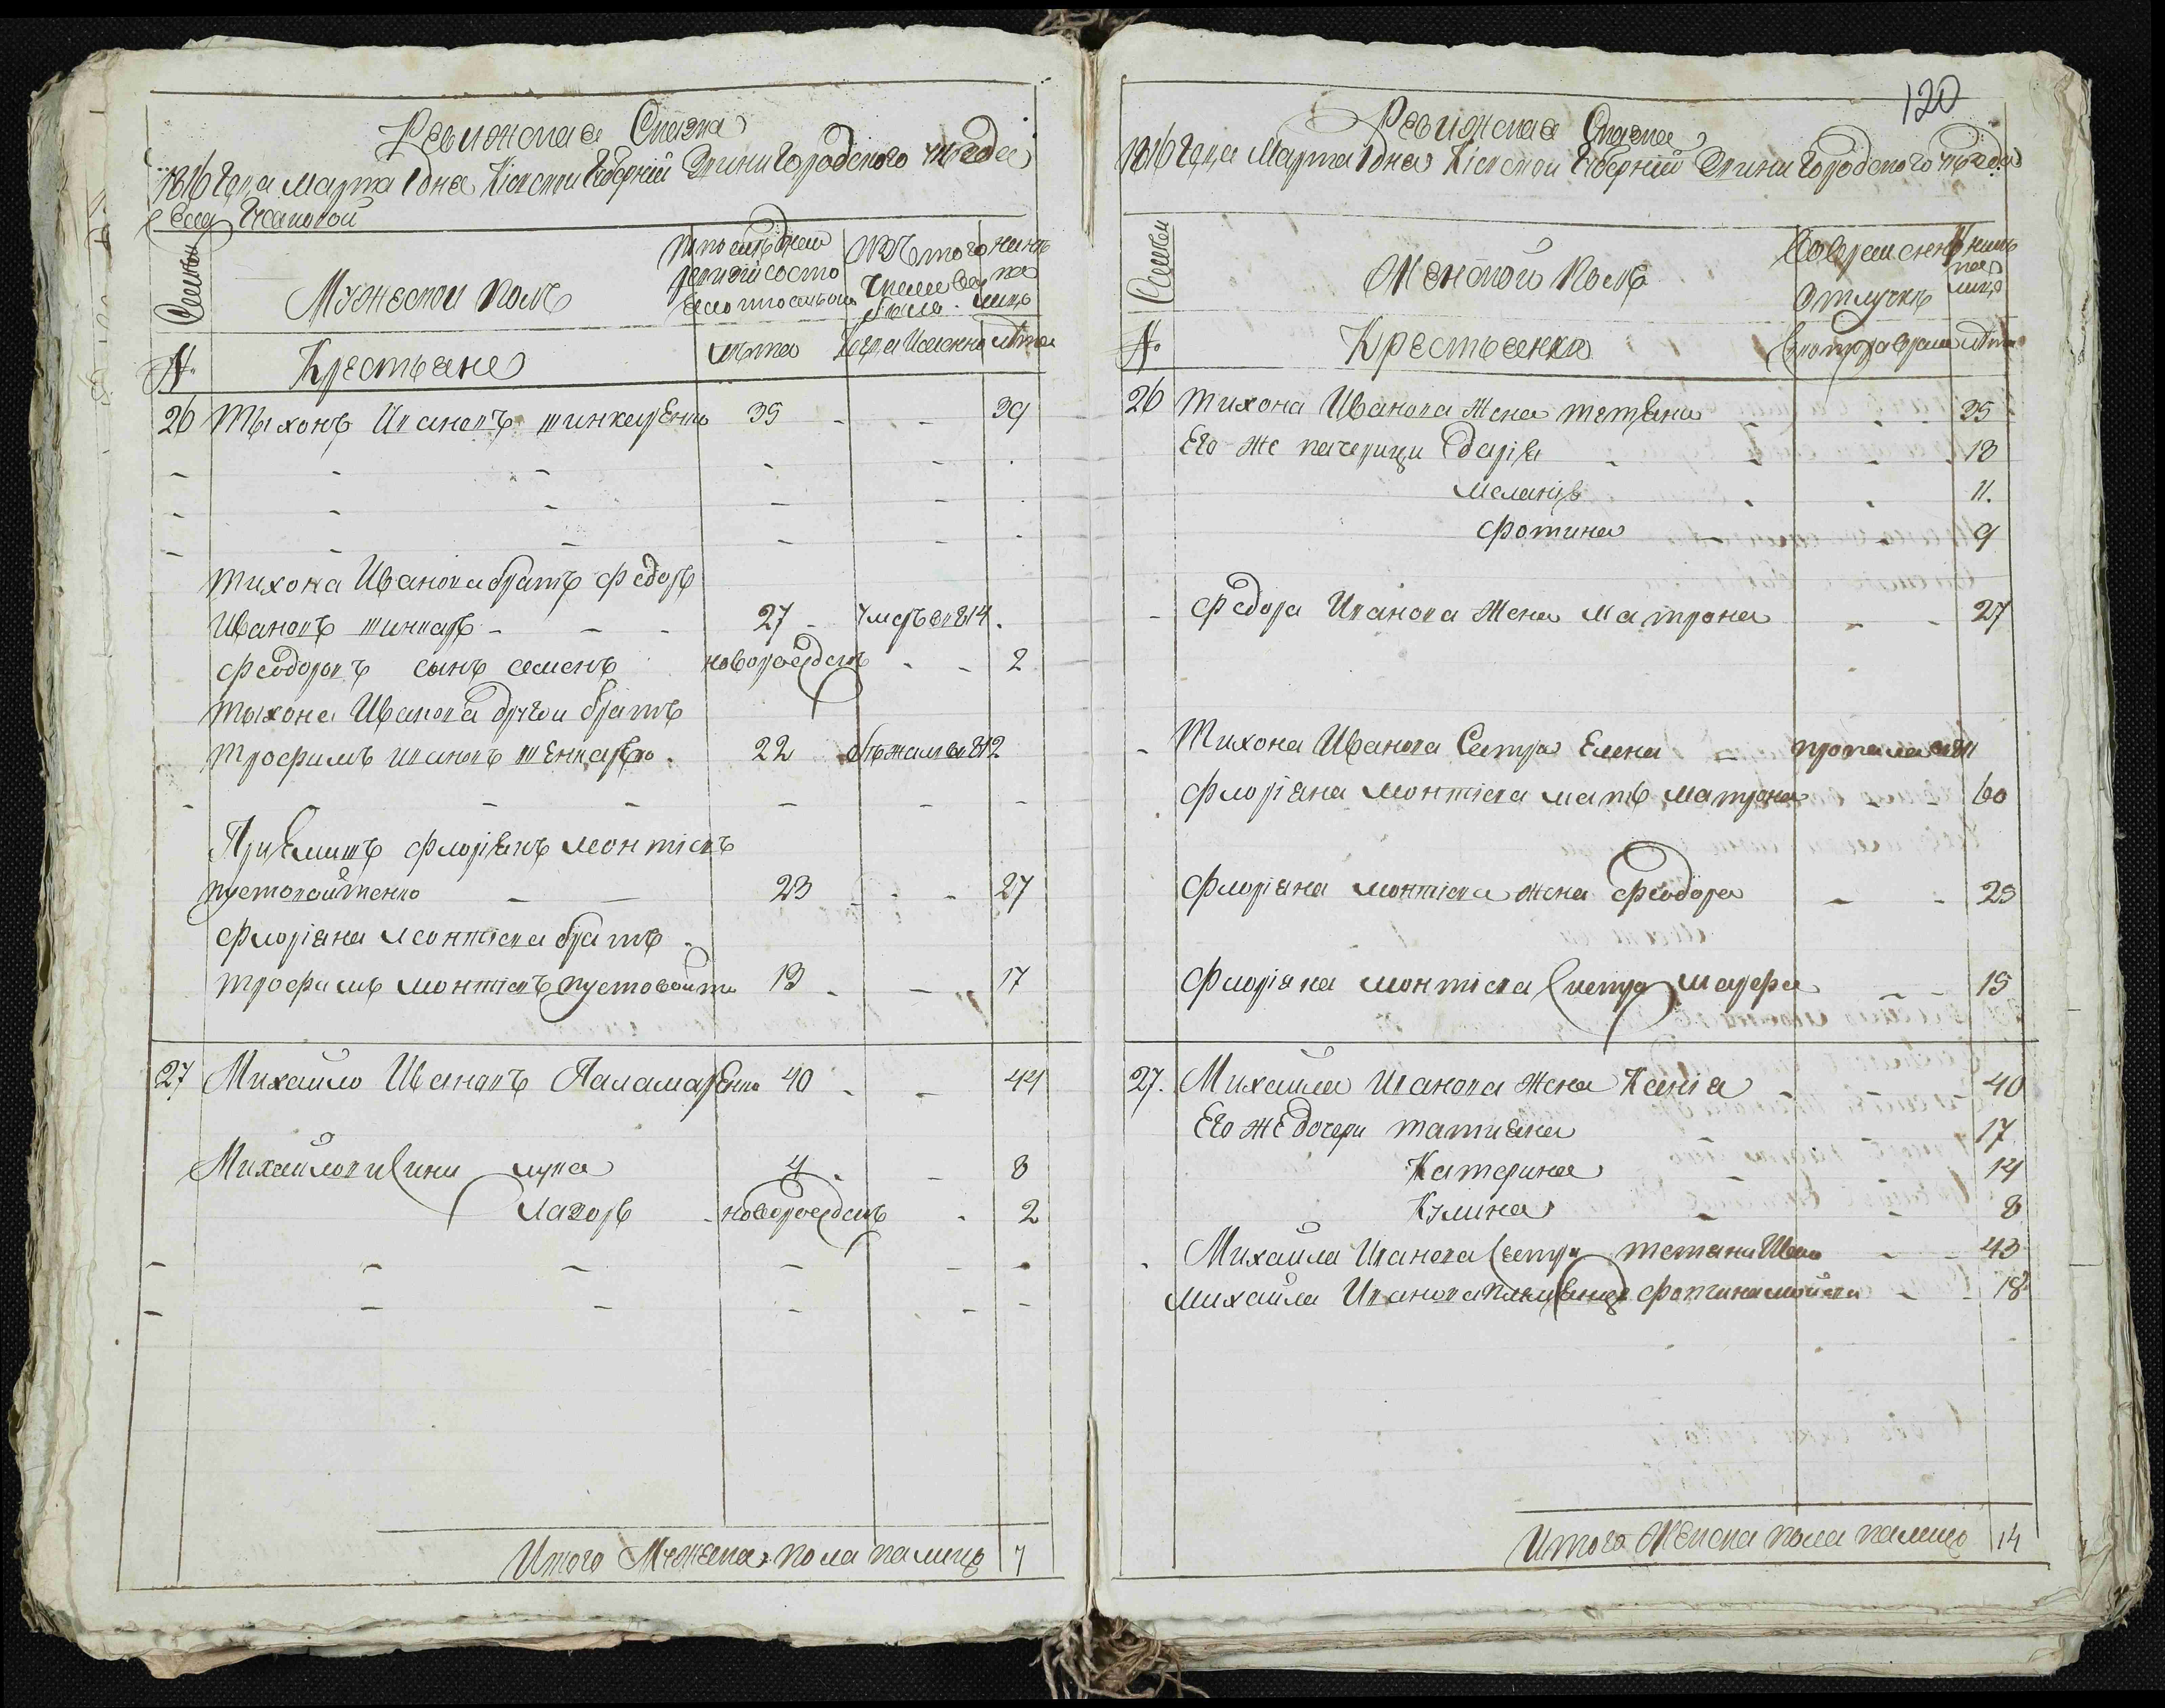 Ревижская Сказка
1816 года марта дня Кіевской Губерній Звинигородского уезда
Села
Семьи
Мужеской полъ
По последней ревизій состояло и после оной
Изъ того числа выбыло
Ныне на лицо
№
Крестьяне
лета
Когда именно
лета
26 Тыхонъ Ивановъ шинкаренко 35 - - 39
Тихона Иванова братъ Федоръ
Ивановъ шинкаръ - - - 27 - умеръ в 814
Феодоровъ сынъ Семенъ новорожденъ - - 2
Тыхона Иванова другой братъ
Трофимъ Ивановъ шенкаренко 22 бежалъ в 812
Приемишъ Флоріянъ Леонтіевъ
пустовойтенко - - 23 - - - 27
Флоріяна Леонтіева братъ
Трофимъ Леонтіевъ пустовойтъ 13 - - 17
27 Михайло Ивановъ Паламаренко 40 - - 44
Михайлови сини лука 4 - - 8
Лазоръ - новорожденъ - 2
Итого Мужеска пола налицо 7
120
Ревижская Сказка
1816 года Марта дня Кіевской Губерній Звинигородского уезда
Семьи
Женской полъ
Во временной отлучке
Ныне на лицо
№
Крестьянка
лета
26 Тихона Иванова жена Тетяна - - - 35
Его же пачерици Дарія - - - 13
Меланія - - 11.
Фотина - 9
- Федора Иванова жена Матрона - - 27
- Тихона Иванова Сестра Елена - пропала в 811
Флоріяна Леонтіева мать Матрона 60
Флоріяна Леонтіева жена Феодора - - 25
Флоріяна Леонтіева Сестра Марфа - - 15
27. Михайла Иванова жена Ксенія - - 40
Его же дочери Татияна 17
Катерина - - 14
Кулина - - 8
Михайла Иванова Сестра Тетяна - - 43
Михайла Иванова племяница Фотина - - 18
Итого Женска пола налицо 14